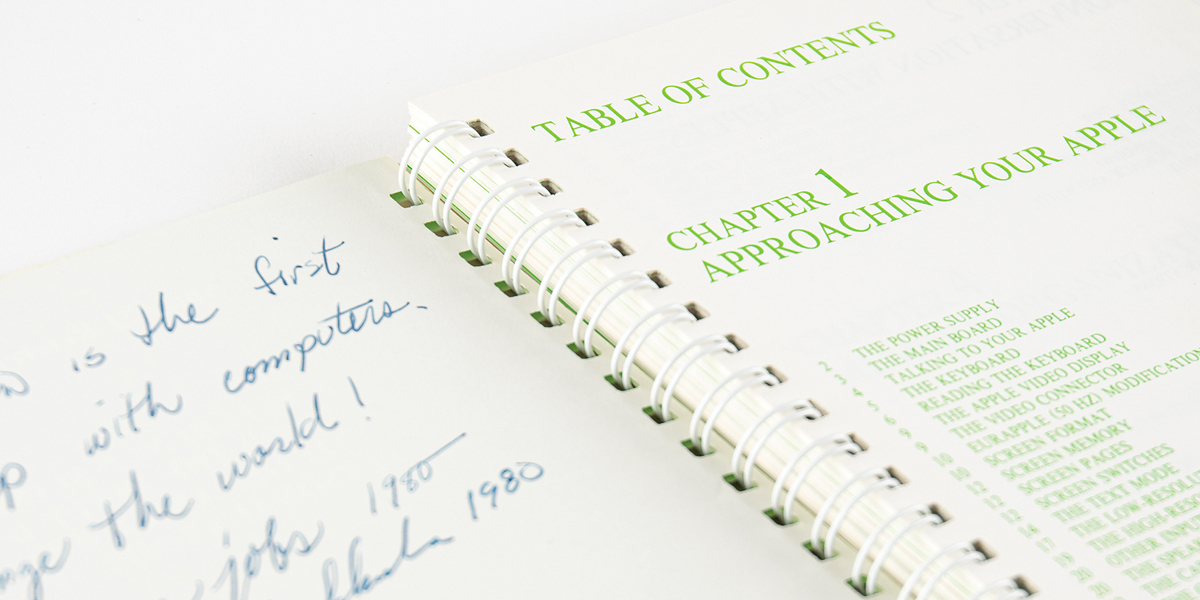 is the first
with computers.
the world!
the
jobs 1980
1980
TABLE OF CONTENTS
CHAPTER 1
APPROACHING YOUR APPLE
2 THE POWER SUPPLY
3 THE MAIN BOARD
4 TALKING TO YOUR APPLE
5 THE KEYBOARD
6 READING THE KEYBOARD
9 THE APPLE VIDEO DISPLAY
9 THE VIDEO CONNECTOR
10 EURAPPLE (50 HZ) MODIFICATION
10 SCREEN FORMAT
12 SCREEN MEMORY
12 SCREEN PAGES
12 SCREEN SWITCHES
14 THE TEXT MODE
17 THE LOW-RESOL
19 THE HIGH-RES
20 OTHER INPU
20 THE SPEA
THE CA